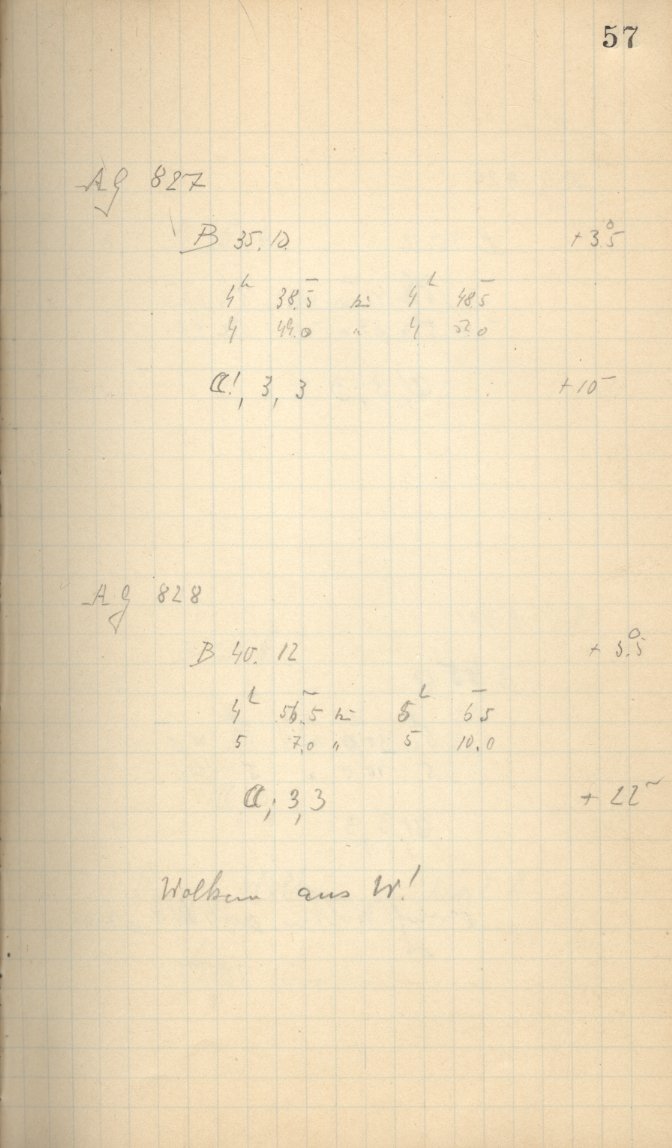 57
AG 827
B 35.12 +3.°5
4ʰ 38.5 bis 4ʰ 48.5
4 49.0 " 4 52.0
☾!, 3, 3 +10ᵐ
AG 828
B 40.12 +3.°5
4ʰ 56.5 bis 5ʰ 6.5
5 7.0 " 5 10.0
☾, 3, 3 +22ᵐ
Wolken aus W!